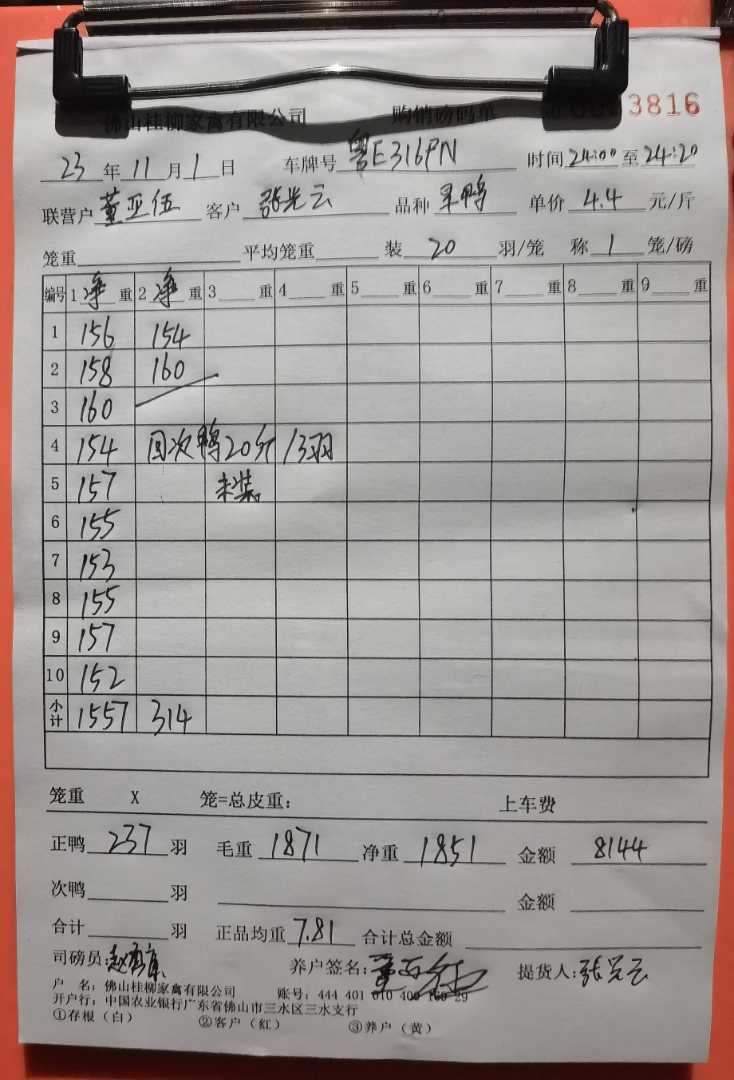 佛山桂柳家禽有限公司 购销磅码单 3816
23 年 11 月 1 日 车牌号 粤E316PN 时间 24:00 至 24:20
联营户 董亚伍 客户 张光云 品种 旱鸭 单价 4.4 元/斤
笼重 平均笼重 装 20 羽/笼 称 1 笼/磅
编号 1 净 重 2 净 重 3 重 4 重 5 重 6 重 7 重 8 重 9 重
1 156 154
2 158 160
3 160
4 154 回次鸭20斤 13羽
5 157 未装
6 155
7 153
8 155
9 157
10 152
小计 1557 314
笼重 X 笼=总皮重： 上车费
正鸭 237 羽 毛重 1871 净重 1851 金额 8144
次鸭 羽 金额
合计 羽 正品均重 7.81 合计总金额
司磅员： 养户签名： 提货人：张光云
户 名：佛山桂柳家禽有限公司 账号：444 401 010 400 29
开户行：中国农业银行广东省佛山市三水区三水支行
①存根（白） ②客户（红） ③养户（黄）